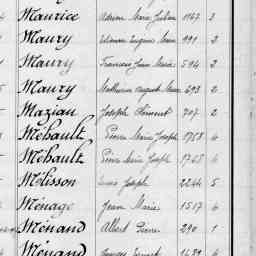 Maurice Marie Julien 1147 3
Maury Eugène Marie 991 2
Maury François Jean Marie 594 2
Maury Mathurin August Marie 693 2
Maziau Joseph Clément 707 2
Méhault Pierre Marie Joseph 1758 4
Méhault Pierre Marie Joseph 1748 4
Mélisson Joseph 2244 5
Ménage Jean Marie 1517 4
Ménand Albert Pierre 290 1
Ménand Ernest 4